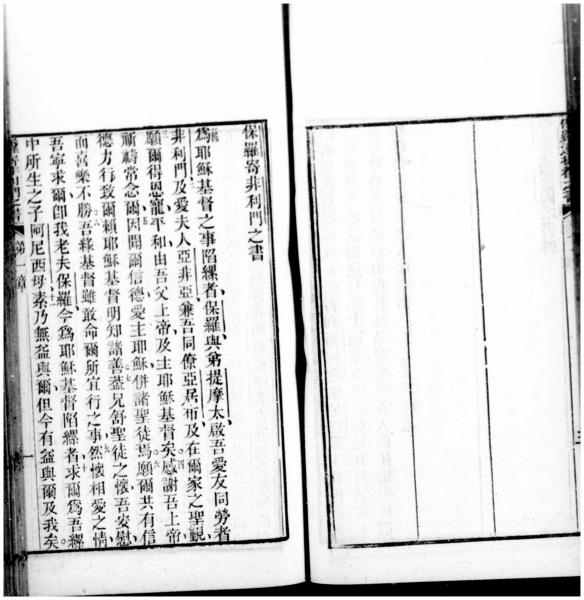 保羅寄非利門之書
為耶穌基督之事陷縲者保羅與弟提摩太啟吾愛友同勞者
非利門及愛夫人亞非亞兼吾同僚亞居布及在爾家之聖覡
願爾得恩寵平和由吾父上帝及主耶穌基督矣感謝吾上帝
祈禱常念爾因聞爾信德愛主耶穌併諸聖徒焉願爾共有信
德力行致爾賴耶穌基督明知諸善葢兄舒聖徒之懷吾安慰
而喜樂不勝吾緣基督雖敢命爾所宜行之事然懷相愛之情
吾寧求爾卽我老夫保羅今為耶穌基督陷縲者求爾為吾縲
中所生之子阿尼西母素乃無益與爾但今有益與爾及我矣
第一章